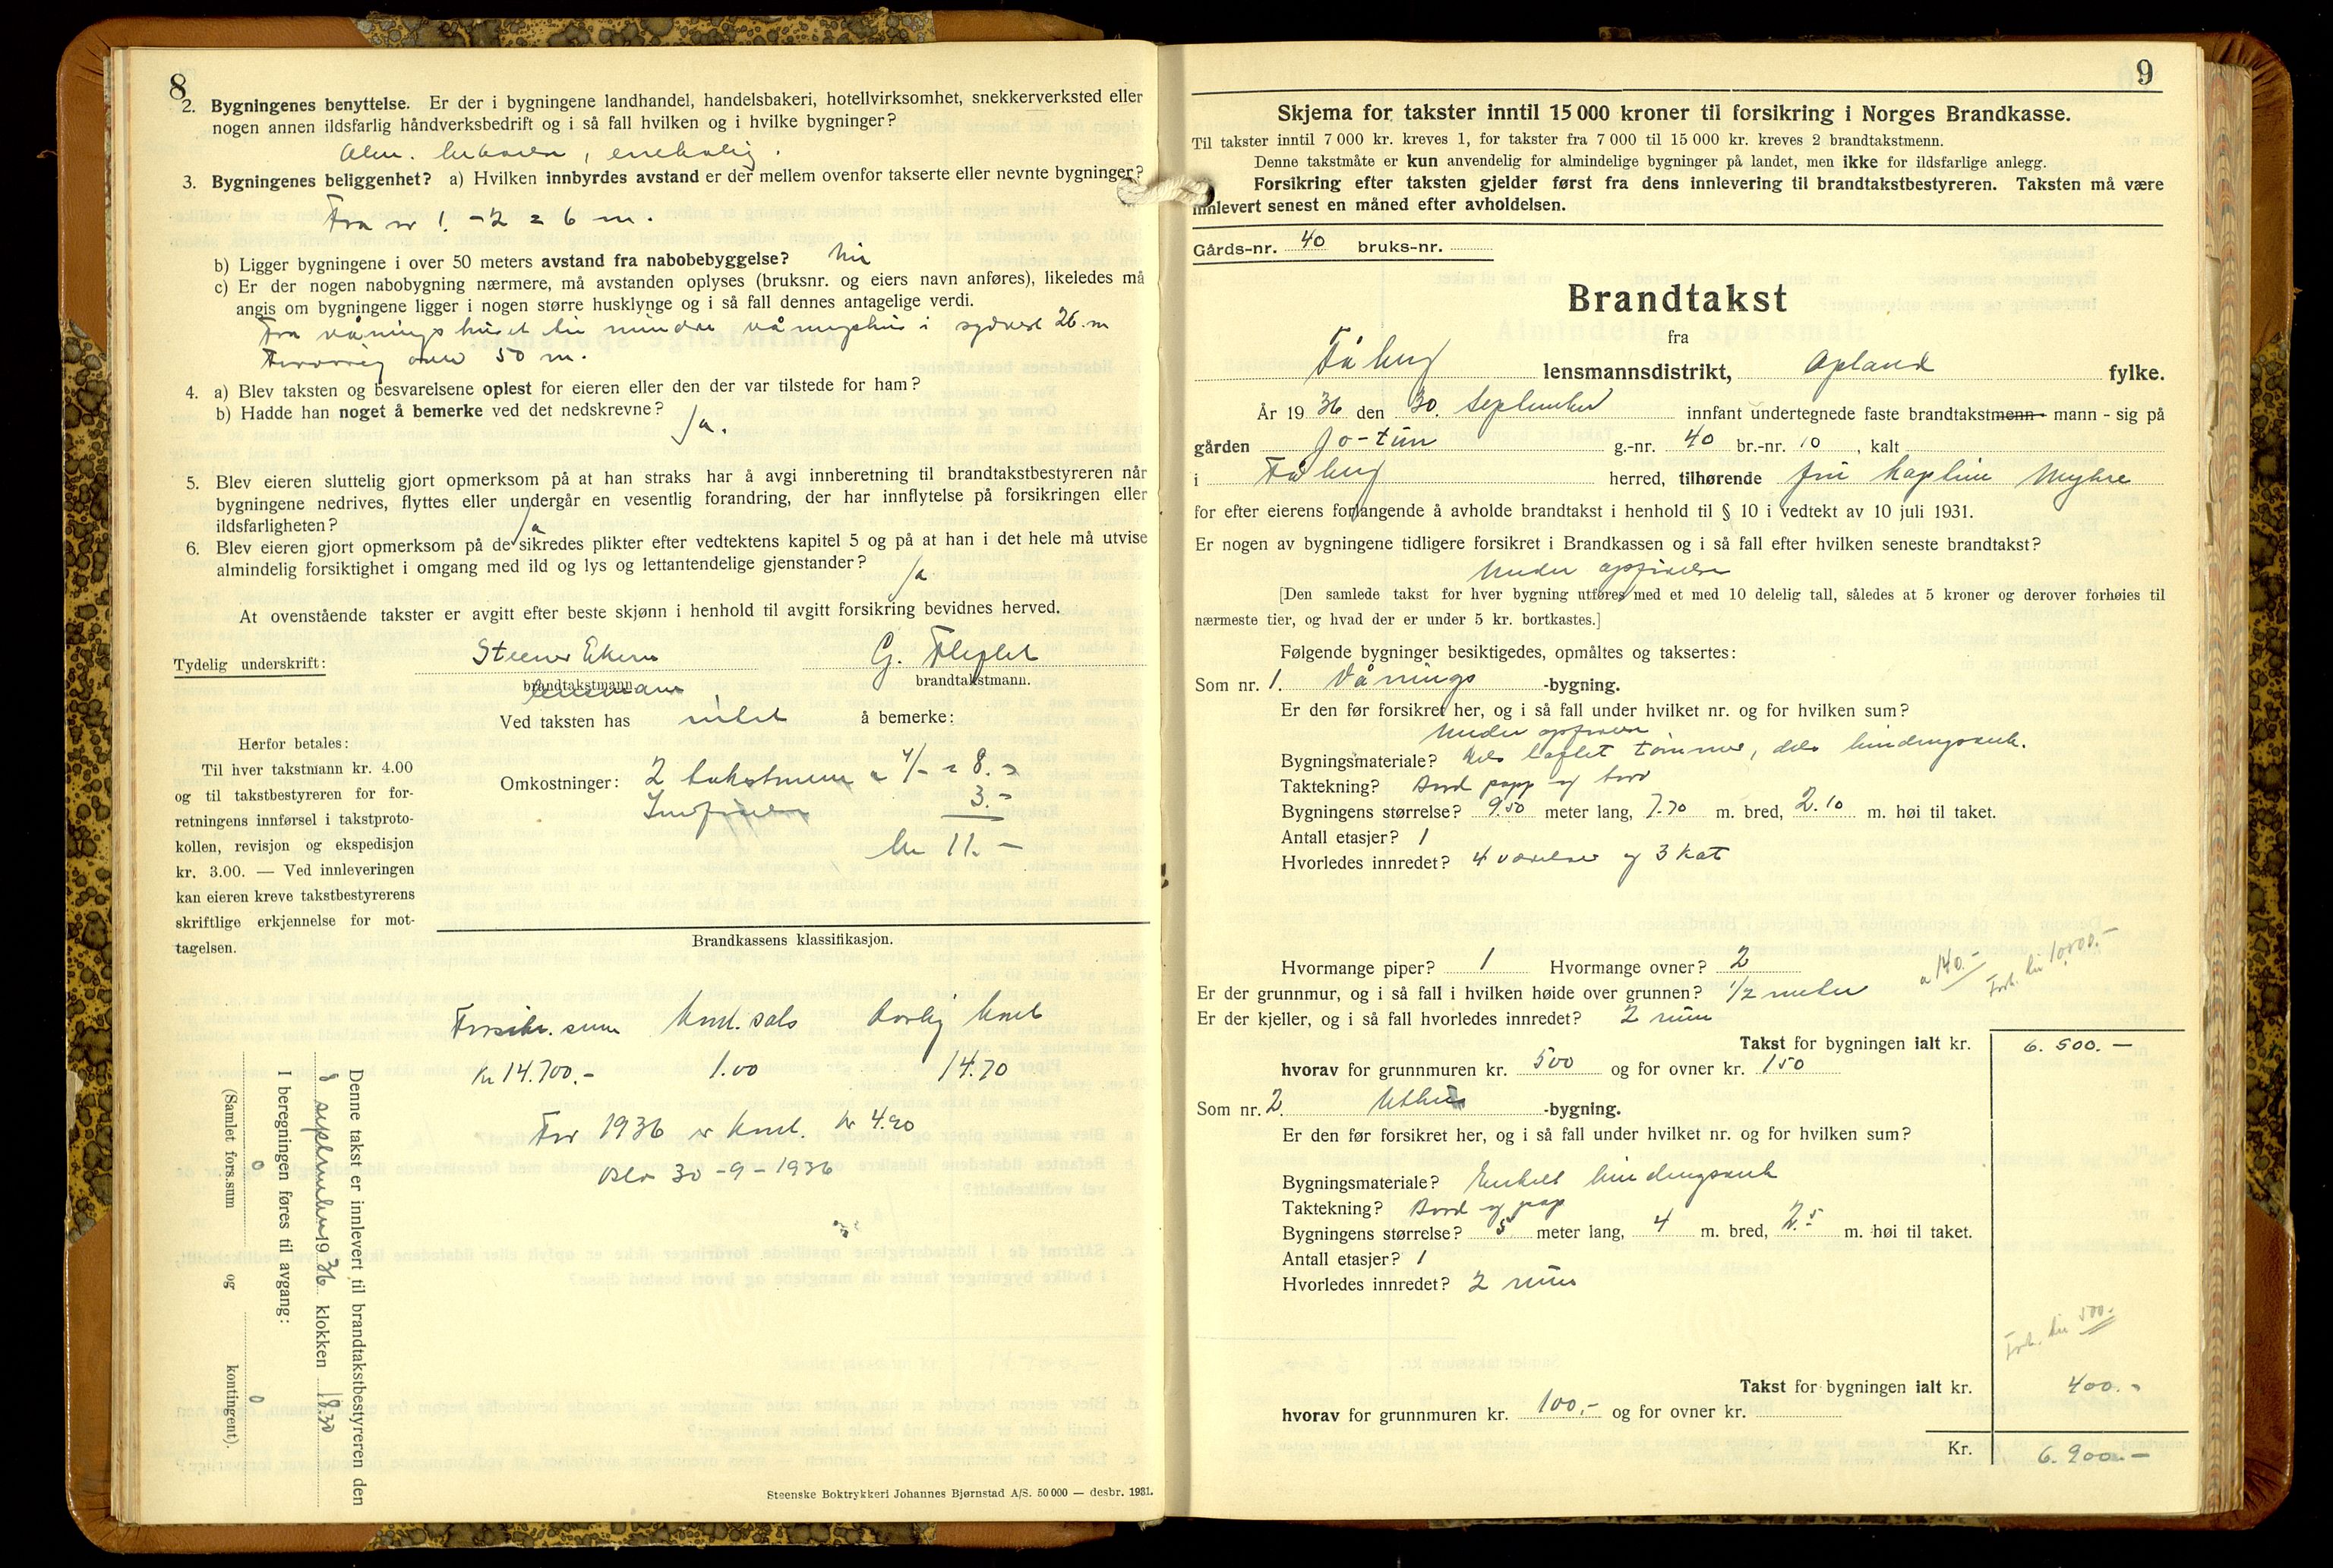 8
2. Bygningenes benyttelse. Er der i bygningene landhandel, handelsbakeri, hotellvirksomhet, snekkerverksted eller
nogen annen ildsfarlig håndverksbedrift og i så fall hvilken og i hvilke bygninger?
Alm. beboelse, enebolig.
3. Bygningenes beliggenhet? a) Hvilken innbyrdes avstand er der mellem ovenfor takserte eller nevnte bygninger?
Fra nr 1 - 2 = 6 m.
b) Ligger bygningene i over 50 meters avstand fra nabobebyggelse?
c) Er der nogen nabobygning nærmere, må avstanden oplyses (bruksnr. og eiers navn anføres), likeledes må
angis om bygningene ligger i nogen større husklynge og i så fall dennes antagelige verdi.
Fra våningshuset til mindre våningshus i sydvest 26 m
Forøvrig over 50 m.
4. a) Blev taksten og besvarelsene oplest for eieren eller den der var tilstede for ham?
b) Hadde han noget å bemerke ved det nedskrevne?
Ja.
5. Blev eieren sluttelig gjort opmerksom på at han straks har å avgi innberetning til brandtakstbestyreren når
bygningene nedrives, flyttes eller undergår en vesentlig forandring, der har innflytelse på forsikringen eller
ildsfarligheten? Ja
6. Blev eieren gjort opmerksom på de sikredes plikter efter vedtektens kapitel 5 og på at han i det hele må utvise
almindelig forsiktighet i omgang med ild og lys og lettantendelige gjenstander? Ja
At ovenstående takster er avgitt efter beste skjønn i henhold til avgitt forsikring bevidnes herved.
Tydelig underskrift: Steener Ekern G. Fliflet
brandtakstmann. brandtakstmann.
lensmann
Ved taksten has intet å bemerke:
Herfor betales:
Til hver takstmann kr. 4.00
og til takstbestyreren for for-
retningens innførsel i takstproto-
kollen, revisjon og ekspedisjon
kr. 3.00. — Ved innleveringen
kan eieren kreve takstbestyrerens
skriftlige erkjennelse for mot-
tagelsen.
Omkostninger: 2 takstmenn a 4/- = 8.-
Innførselen 3.-
kr 11.-
Brandkassens klassifikasjon.
Forsikr. sum Kont. sats Aarlig Kont
Kr 14.700.- 1.00 14.70
For 1936 er kont. kr 4.90
Oslo 30-9-1936
Denne takst er innlevert til brandtakstbestyreren den
september 1936 klokken 18.30
I beregningen føres til avgang:
0 0
(Samlet fors.sum og kontingent).
Steenske Boktrykkeri Johannes Bjørnstad A/S. 50 000 — desbr. 1931.
9
Skjema for takster inntil 15 000 kroner til forsikring i Norges Brandkasse.
Til takster inntil 7 000 kr. kreves 1, for takster fra 7 000 til 15 000 kr. kreves 2 brandtakstmenn.
Denne takstmåte er kun anvendelig for almindelige bygninger på landet, men ikke for ildsfarlige anlegg.
Forsikring efter taksten gjelder først fra dens innlevering til brandtakstbestyreren. Taksten må være
innlevert senest en måned efter avholdelsen.
Gårds-nr. 40 bruks-nr.
Brandtakst
fra
Fåberg lensmannsdistrikt, Opland fylke.
År 1936 den 30. September innfant undertegnede faste brandtakstmenn - mann - sig på
gården Jo-tun g.-nr. 40 br.-nr. 10, kalt
i Fåberg herred, tilhørende fru kaptein Myhre
for efter eierens forlangende å avholde brandtakst i henhold til § 10 i vedtekt av 10 juli 1931.
Er nogen av bygningene tidligere forsikret i Brandkassen og i så fall efter hvilken seneste brandtakst?
Under opførelse
[Den samlede takst for hver bygning utføres med et med 10 delelig tall, således at 5 kroner og derover forhøies til
nærmeste tier, og hvad der er under 5 kr. bortkastes.]
Følgende bygninger besiktigedes, opmåltes og taksertes:
Som nr. 1. Vånings -bygning.
Er den før forsikret her, og i så fall under hvilket nr. og for hvilken sum?
Under opførelse
Bygningsmateriale? dels laftet tømmer, dels bindingsverk.
Taktekning? Bord papp og torv
Bygningens størrelse? 9.50 meter lang, 7.70 m. bred, 2.10 m. høi til taket.
Antall etasjer? 1
Hvorledes innredet? 4 værelser og 3 kot
Hvormange piper? 1 Hvormange ovner? 2
a 140.- Forh. til 10,000.-
Er der grunnmur, og i så fall i hvilken høide over grunnen? 1/2 meter
Er der kjeller, og i så fall hvorledes innredet? 2 rum
Takst for bygningen ialt kr. 6.500.-
hvorav for grunnmuren kr. 500 og for ovner kr. 150
Som nr. 2. Uthus -bygning.
Er den før forsikret her, og i så fall under hvilket nr. og for hvilken sum?
Bygningsmateriale? Enkelt bindingsverk
Taktekning? Bord og pap
Bygningens størrelse? 5 meter lang, 4 m. bred, 2.5 m. høi til taket.
Antall etasjer? 1
Hvorledes innredet? 2 rum
Forh. til 500.-
Takst for bygningen ialt kr. 400.-
hvorav for grunnmuren kr. 100.- og for ovner kr.
Kr. 6.900.-